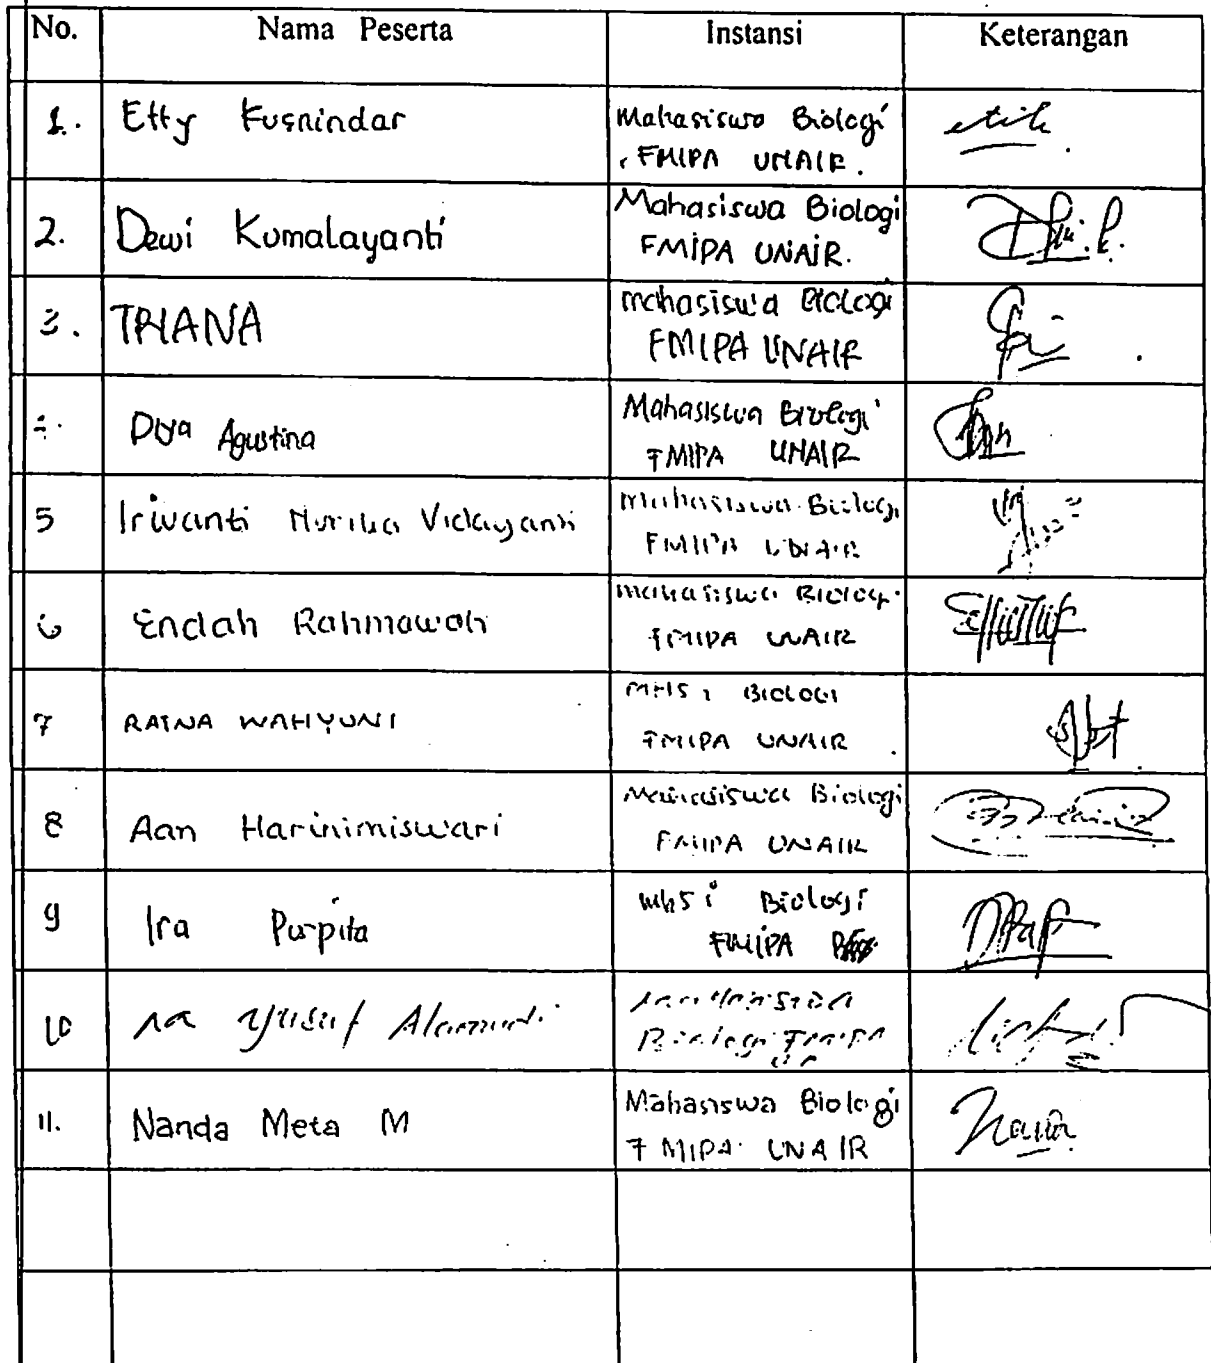 No. Nama Peserta Instansi Keterangan
1. Etty Kusnindar Mahasiswa Biologi
FMIPA UNAIR.
2. Dewi Kumalayanti Mahasiswa Biologi
FMIPA UNAIR.
3. TRIANA mahasiswa Biologi
FMIPA UNAIR
Agustina Mahasiswa Biologi
FMIPA UNAIR
5 Mahasiswa Biologi
FMIPA UNAIR
6 Endah Rahmawati mahasiswa Biologi
FMIPA UNAIR
7 RATNA WAHYUNI MHSi BIOLOGI
FMIPA UNAIR
8 Aan Harinimiswari Mahasiswa Biologi
FMIPA UNAIR
9 Ira Puspita Mhsi Biologi
FMIPA
10 Yusuf
Biologi FMIPA
11. Nanda Meta M Mahasiswa Biologi
FMIPA UNAIR